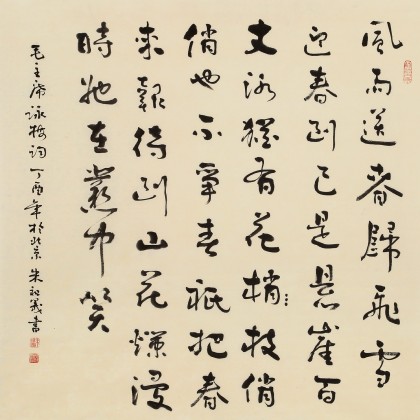 風雨送春歸飛雪
迎春到已是悬崖百
丈冰猶有花梢枝俏
俏也不爭春祇把春
來報待到山花爛漫
時她在叢中笑
毛主席詠梅詞丁酉年於北京朱義書